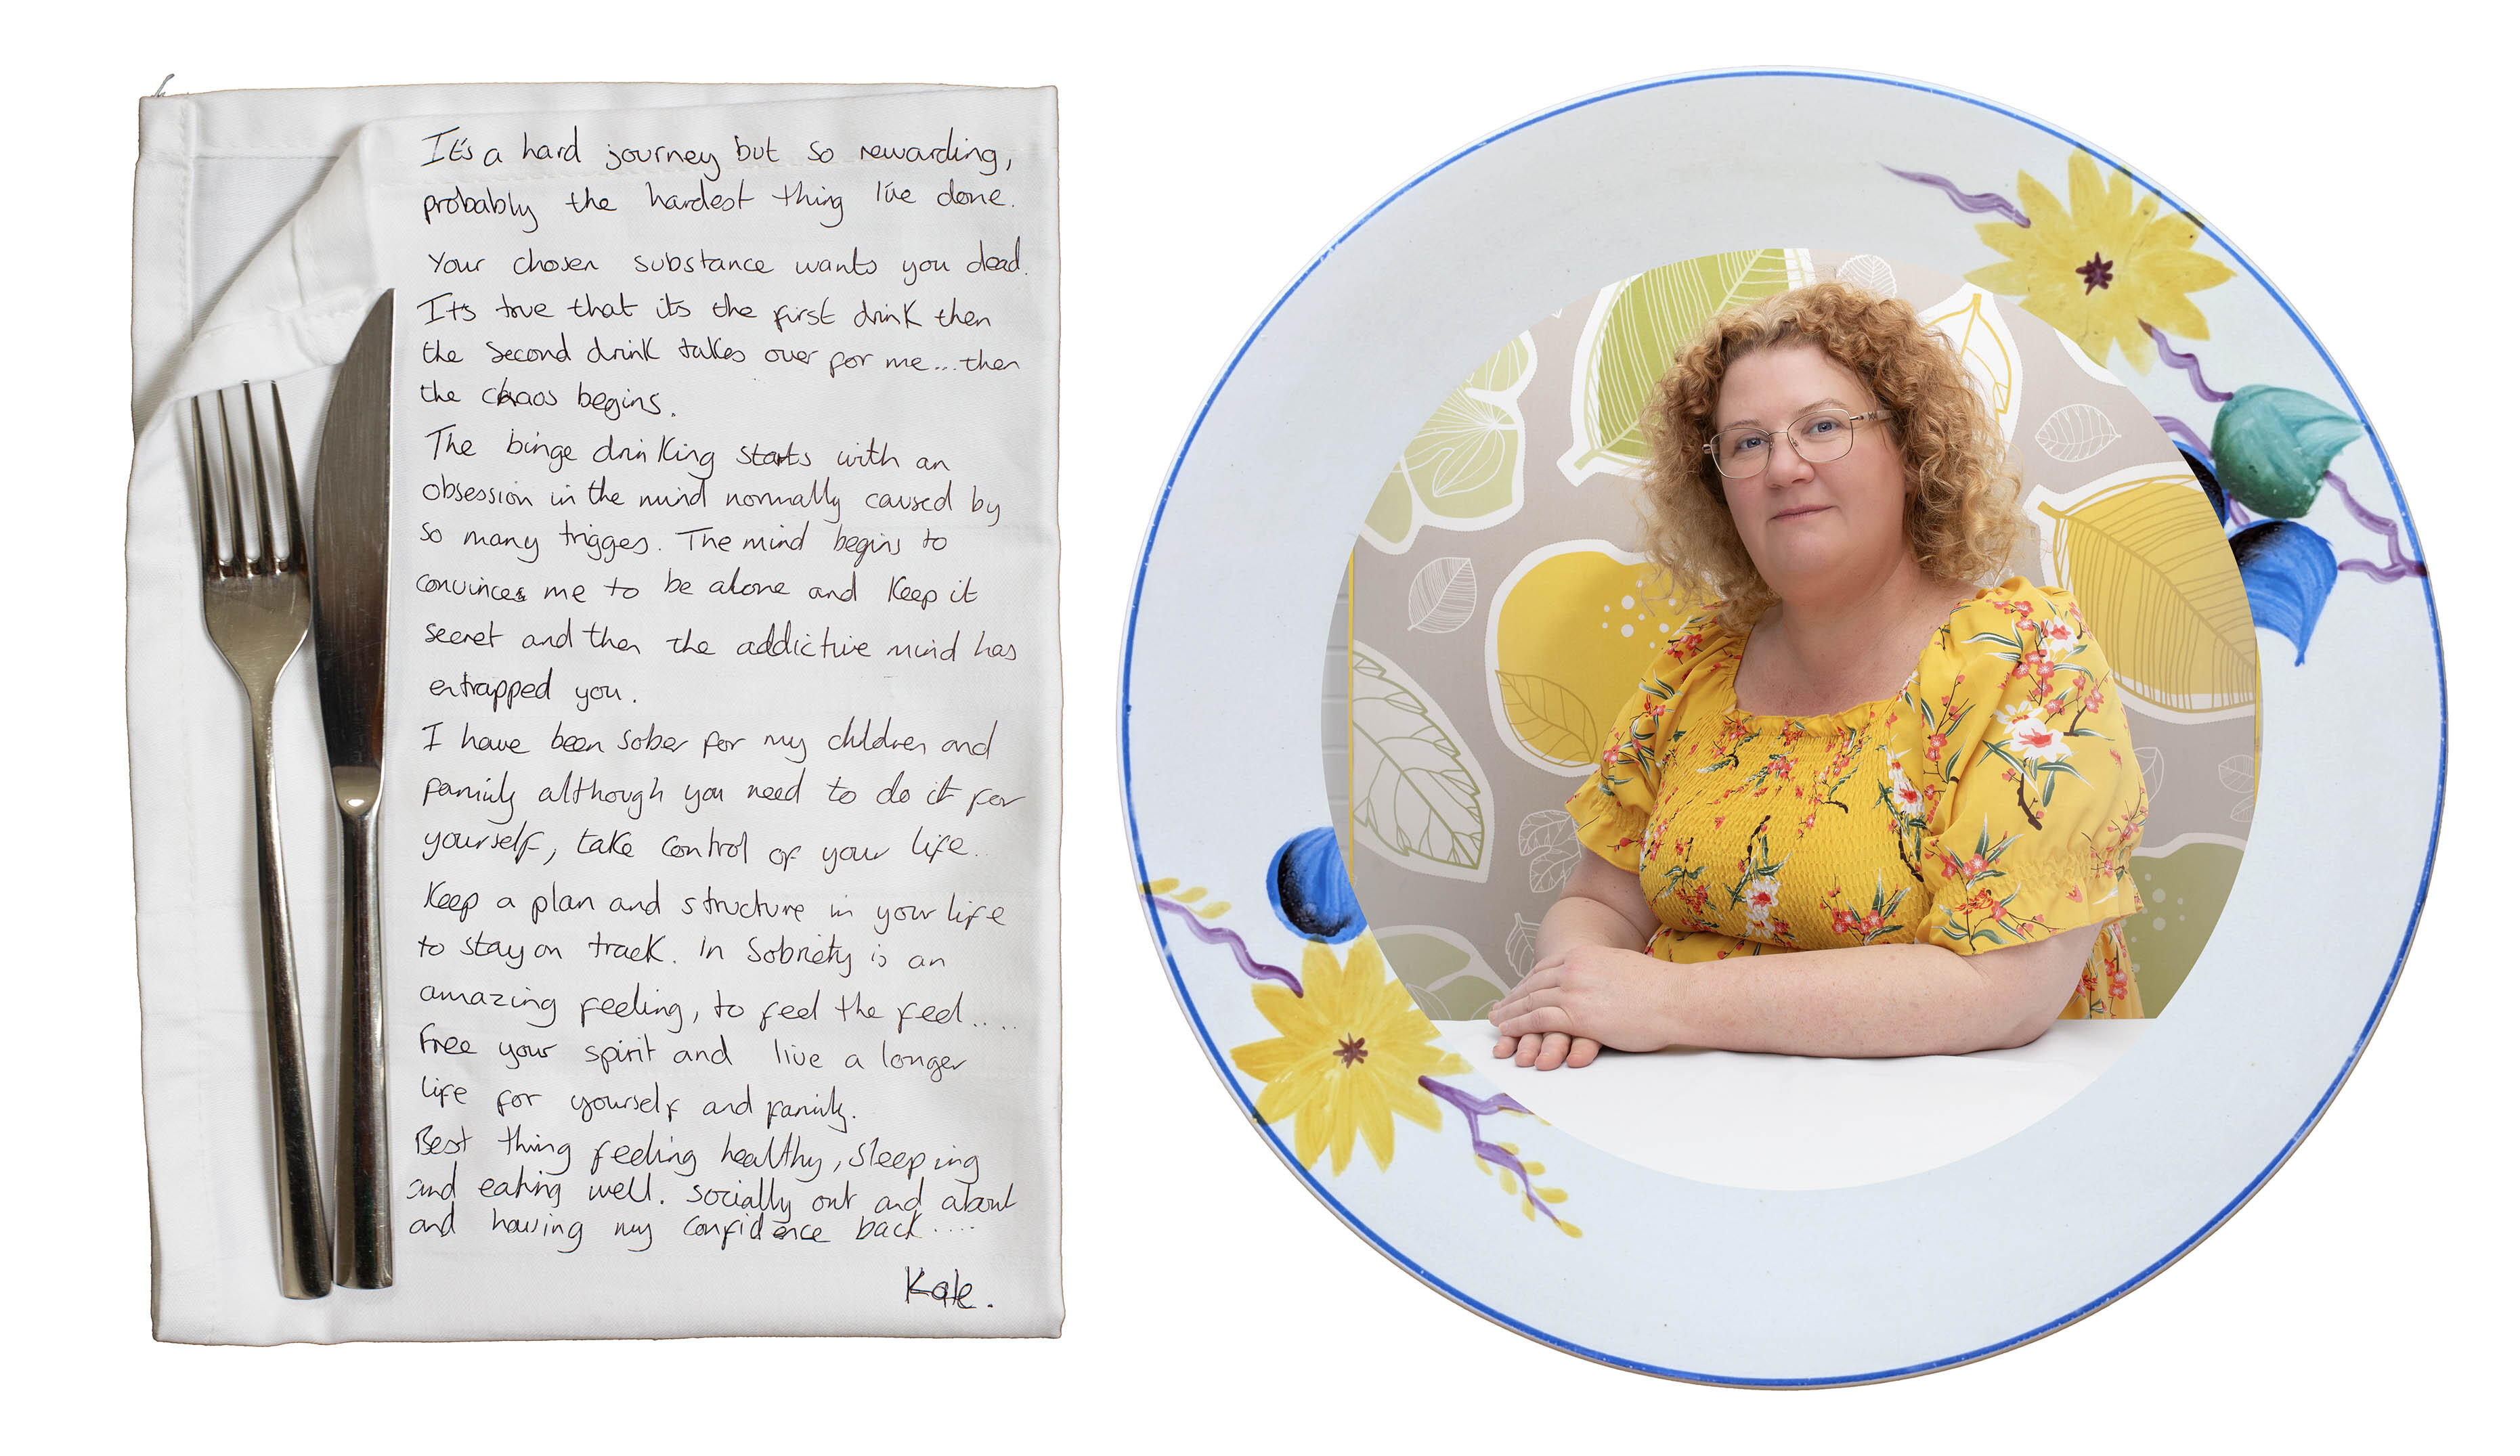 It's a hard journey but so rewarding,
probably the hardest thing I've done.
Your chosen substance wants you dead.
It's true that its the first drink then
the second drink takes over for me...then
the chaos begins.
The binge drinking starts with an
obsession in the mind normally caused by
so many trigges. The mind begins to
convinces me to be alone and keep it
secret and then the addictive mind has
entrapped you.
I have been sober for my children and
family although you need to do it for
yourself, take control of your life.
Keep a plan and structure in your life
to stay on track. In Sobriety is an
amazing feeling, to feel the feel.....
Free your spirit and live a longer
life for yourself and family.
Best thing feeling healthy, sleeping
and eating well. socially out and about
and having my confidence back....
Kate.